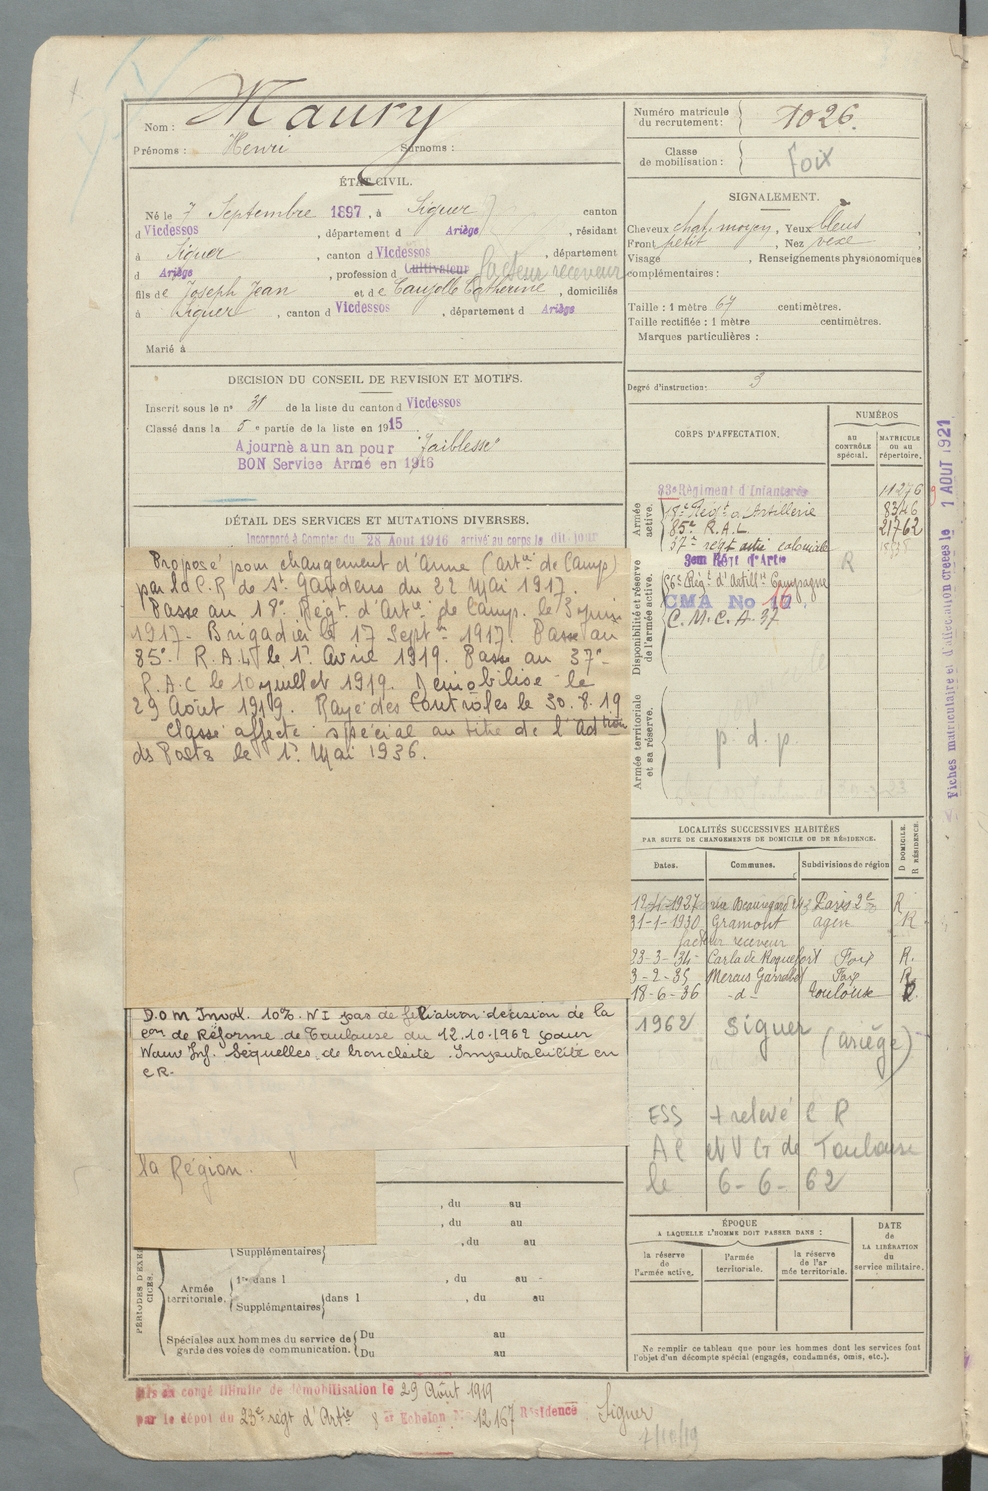 Nom : Maury
Prénoms : Henri Surnoms :
ÉTAT CIVIL.
Né le 7 Septembre 1897, à Siguer canton
d Vicdessos, département d Ariège, résidant
à Siguer, canton d Vicdessos, département
d Ariège, profession d Cultivateur facteur receveur
fils de Joseph Jean et de Cauzolle Catherine, domiciliés
à Siguer, canton d Vicdessos, département d Ariège
Marié à
DÉCISION DU CONSEIL DE REVISION ET MOTIFS.
Inscrit sous le n° 31 de la liste du canton d Vicdessos
Classé dans la 5e partie de la liste en 1915
Ajourné à un an pour "faiblesse"
BON Service Armé en 1916
DÉTAIL DES SERVICES ET MUTATIONS DIVERSES.
Incorporé à Compter du 28 Aout 1916 arrivé au corps le dit jour
Proposé pour changement d'Arme (Artie de Camp)
par la C.R de St Gaudens du 22 Mai 1917.
Passe au 18e Régt d'Artie de Camp. le 3 juin
1917. Brigadier le 17 Septbre 1917. Passe au
85e R.A.L le 1er Avril 1919. Passe au 37e
R.A.C le 10 juillet 1919. Démobilisé le
29 Août 1919. Rayé des Contrôles le 30.8.19
Classé affecté spécial au titre de l'Adtion
des Postes le 1er Mai 1936.
D.O.M Inval. 10% N I pas de filiation décision de la
con de Réforme de Toulouse du 12.10.1962 pour
Séquelles de bronchite. Imputabilité en
CR.
la Région.
, du au
, du au
(Supplémentaires) , du au
PÉRIODES D'EXERCICES.
Armée territoriale.
1re dans l , du au
(Supplémentaires) dans l , du au
Spéciales aux hommes du service de garde des voies de communication.
Du au
Du au
Mis en congé illimité de démobilisation le 29 Août 1919
par le dépôt du 23e régt d'Artie 8e Echelon N° 12167 Résidence Siguer
7/10/19
Numéro matricule du recrutement : 1026.
Classe de mobilisation : Foix
SIGNALEMENT.
Cheveux chat. moyen, Yeux bleus
Front petit, Nez vexe
Visage , Renseignements physionomiques
complémentaires :
Taille : 1 mètre 67 centimètres.
Taille rectifiée : 1 mètre centimètres.
Marques particulières :
Degré d'instruction : 3
CORPS D'AFFECTATION.
NUMÉROS
AU CONTRÔLE SPÉCIAL.
MATRICULE OU AU RÉPERTOIRE.
Armée active.
83e Régiment d'Infanterie 11276
18e Régt d'Artillerie 8346
85e R.A.L 21762
37e régt artie coloniale
Disponibilité et réserve de l'armée active.
3em Régt d'Artie R
Régt d'Artillie Campagne
CMA No 16
C.M.C.A. 37
Armée territoriale et sa réserve.
p. d. p.
Fiches matriculaire et d'affectation créées le 1 AOUT 1921
LOCALITÉS SUCCESSIVES HABITÉES
PAR SUITE DE CHANGEMENTS DE DOMICILE OU DE RÉSIDENCE.
Dates. Communes. Subdivisions de région
D DOMICILE. R RÉSIDENCE.
12-4-1927 rue Beauregard 42 Paris 2e R
31-1-1930 Gramont agen R
facteur receveur
23-3-34 Carla de Roquefort Foix R.
3-2-35 Mercus Garrabet Foix R.
18-6-36 -d- Toulouse R.
1962 Siguer (ariège)
ESS + relevé C R
AC et V G de Toulouse
le 6-6-62
ÉPOQUE
À LAQUELLE L'HOMME DOIT PASSER DANS :
la réserve de l'armée active.
l'armée territoriale.
la réserve de l'armée territoriale.
DATE de LA LIBÉRATION du service militaire.
Ne remplir ce tableau que pour les hommes dont les services font
l'objet d'un décompte spécial (engagés, condamnés, omis, etc.).